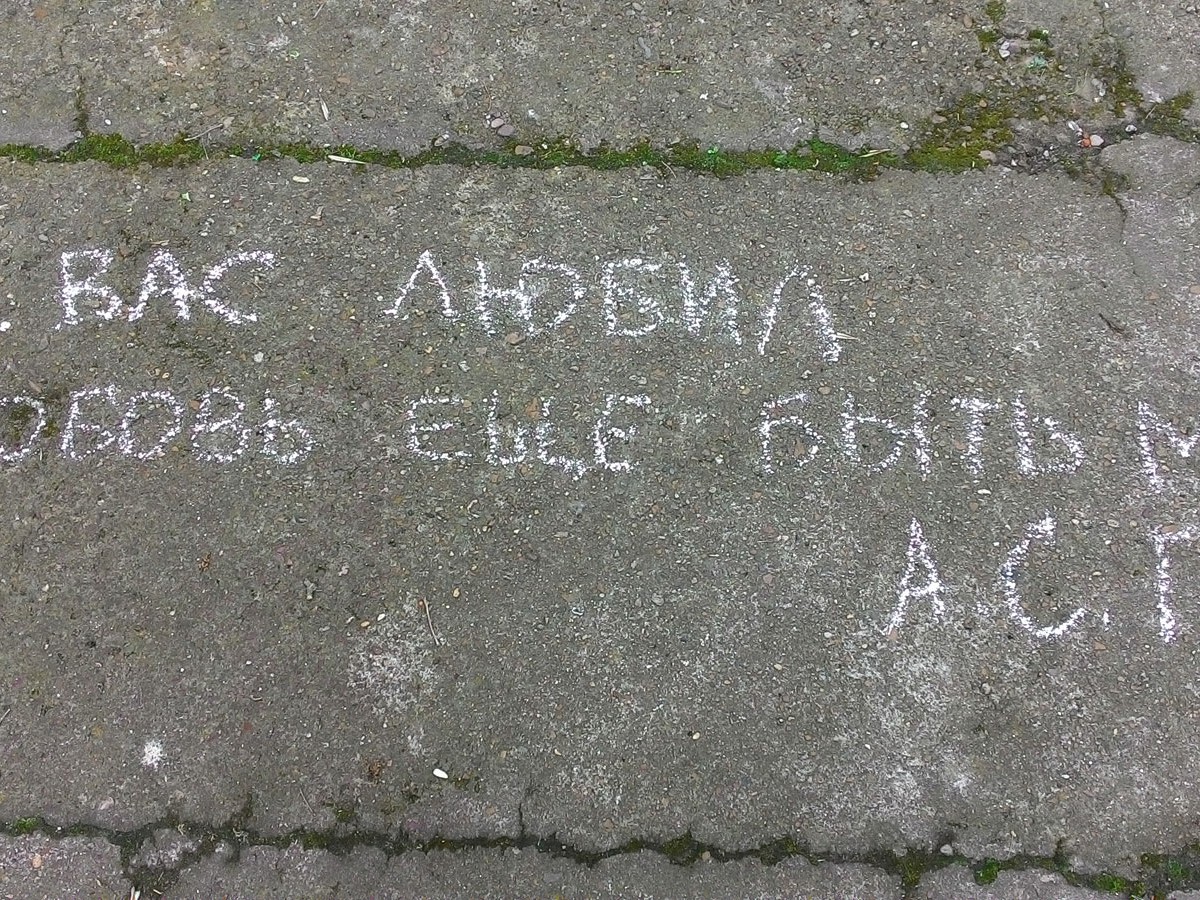 ВАС ЛЮБИЛ
ЮБОВЬ ЕЩЕ БЫТЬ М
А.С.П